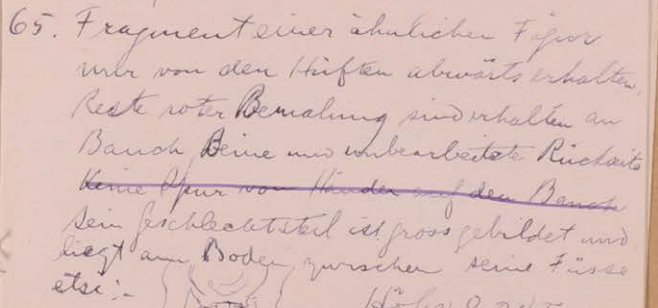 65. Fragment einer ähnlicher Figur
nur von den Hüften abwärts erhalten,
Reste roter Bemalung sind erhalten an
Bauch, Beine und unbearbeitete Rückseite
Keine Spur von Händen auf den Bauch
sein Geschlechtsteil ist gross gebildet und
liegt am Boden zwischen seine Füsse
etc:-
Höhe 0